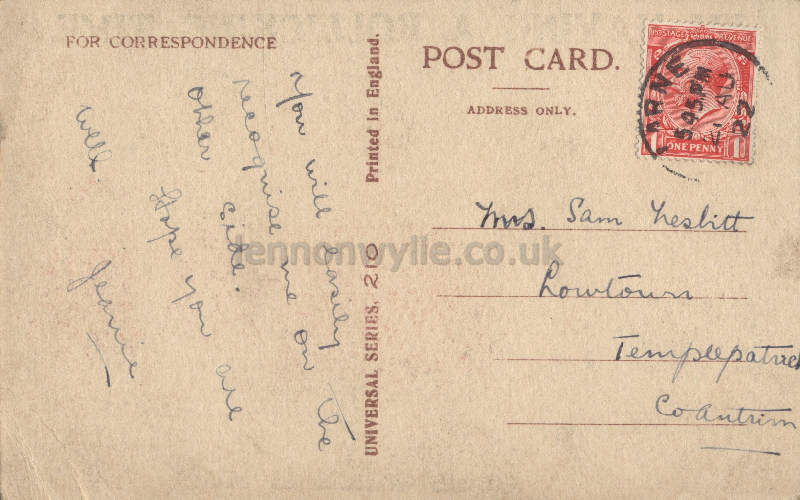 FOR CORRESPONDENCE
You will easily
recognise me on the
other side.
Hope you are
well.
Jeanie
Printed in England.
UNIVERSAL SERIES. 210
POST CARD.
ADDRESS ONLY.
POSTAGE REVENUE
ONE PENNY
1
LARNE
5.45 PM
AU
22
Mrs. Sam Nesbitt
Lowtown
Templepatrick
Co Antrim
lennonwylie.co.uk